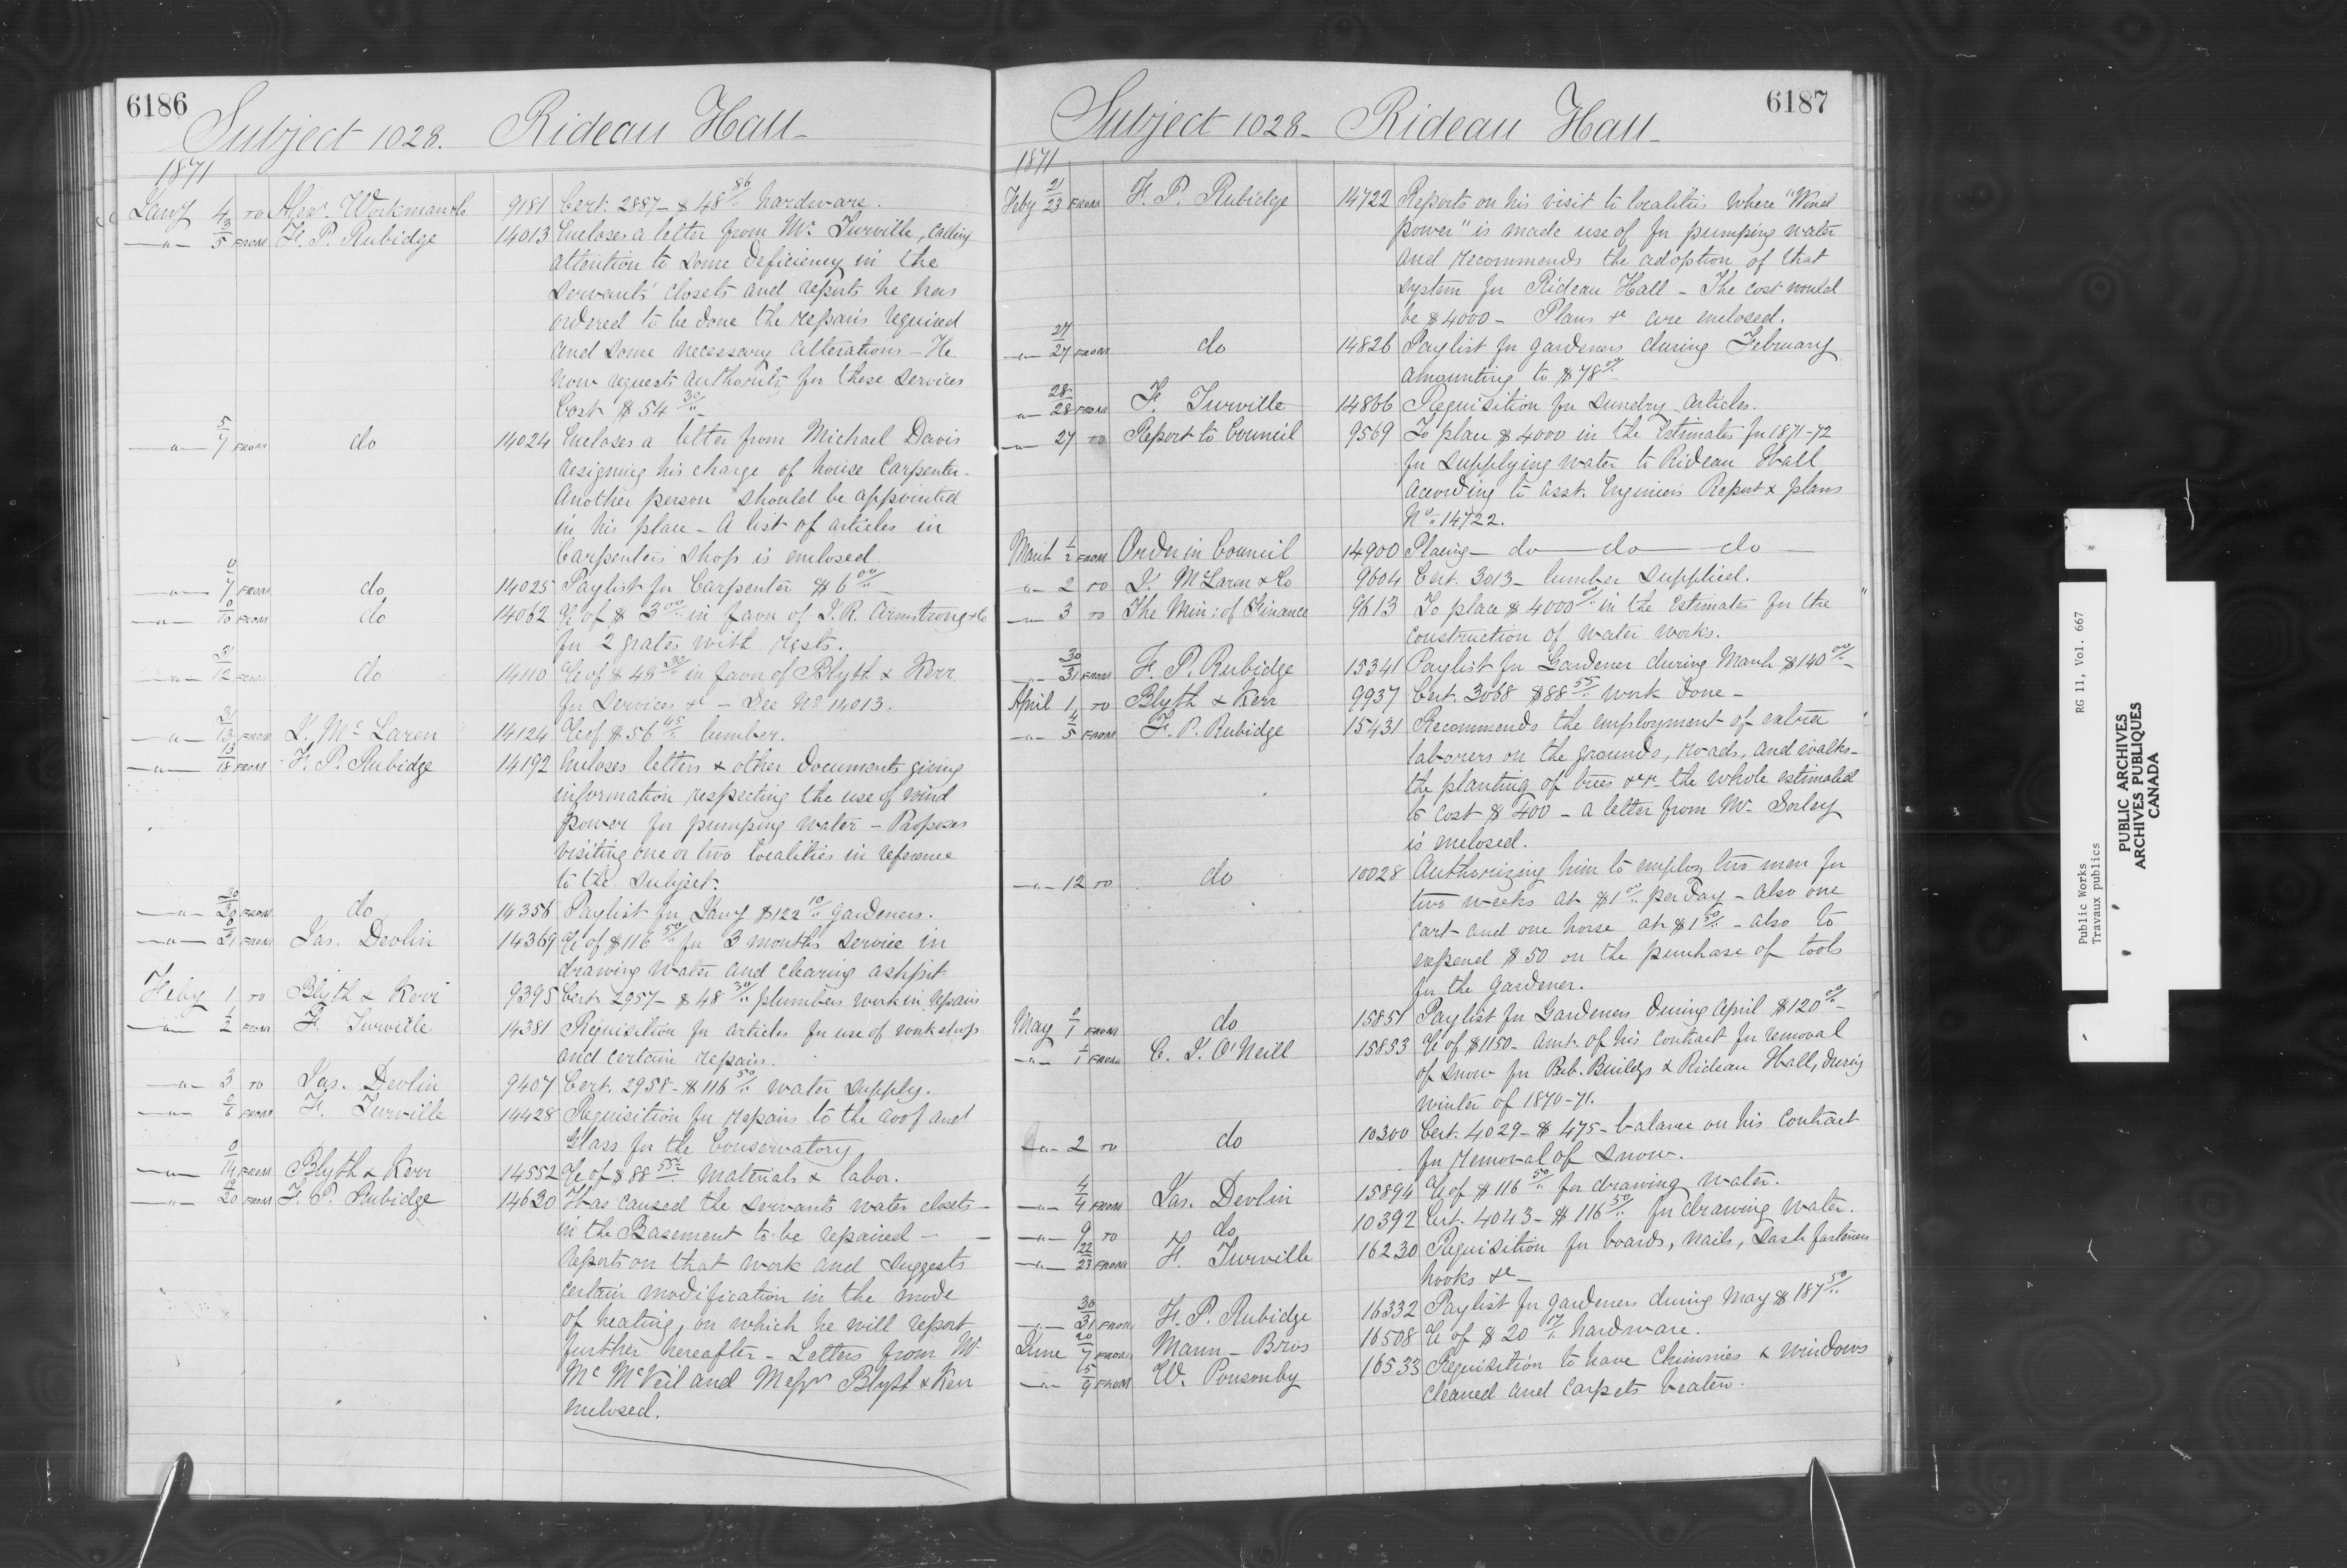 6186
Subject 1028. Rideau Hall
1871
Jany 4 TO Alexr. Workman & Co 9181 Cert. 2887 - $48 86/.. hardware.
-"- 3/5 FROM F. P. Rubidge 14013 Encloses a letter from Mr. Turville, calling
attention to some deficiency in the
servants' closets and reports he has
ordered to be done the repairs required
and some necessary alterations - He
now requests authority for these services
Cost $54 30/..
-"- 5/7 FROM do 14024 Encloses a letter from Michael Davis
resigning his charge of house Carpenter.
Another person should be appointed
in his place - A list of articles in
Carpenter's shop is enclosed
-"- 0/7 FROM do 14025 Paylist for Carpenter $6 00/..
-"- 0/10 FROM do 14062 a/c of $3 00/.. in favor of J. R. Armstrong & Co
for 2 grates with rests.
-"- 31/12 FROM do 14110 a/c of $48 30/.. in favor of Blyth & Kerr
for services &c - See No 14013.
-"- 31/13 FROM J. McLaren 14124 a/c of $56 45/.. lumber.
-"- 13/18 FROM F. P. Rubidge 14192 Encloses letters & other documents giving
information respecting the use of wind
power for pumping water - Proposes
visiting one or two localities in reference
to the subject.
-"- 30/30 FROM do 14356 Paylist for Jany $122 10/.. gardeners.
-"- 0/31 FROM Jas. Devlin 14369 a/c of $116 50/.. for 3 months service in
drawing water and clearing ashpit
Feby 1 TO Blyth & Kerr 9395 Cert. 2957 - $48 30/.. plumbers work in repairs
-"- 1/2 FROM F. Turville 14381 Requisition for articles for use of workshop
and certain repairs.
-"- 3 TO Jas. Devlin 9407 Cert. 2958 - $116 50/.. water supply.
-"- 2/6 FROM F. Turville 14428 Requisition for repairs to the roof and
Glass for the Conservatory
-"- 0/14 FROM Blyth & Kerr 14552 a/c of $88 55/.. materials & labor.
-"- 18/20 FROM F. P. Rubidge 14630 Has caused the servants water closets -
in the Basement to be repaired -
reports on that work and suggests
certain modification in the mode
of heating, on which he will report
further hereafter - Letters from Mr.
Mc McVeil and Messrs Blyth & Kerr
enclosed.
6187
Subject 1028 - Rideau Hall
1871
Feby 21/23 FROM F. P. Rubidge 14722 Reports on his visit to localities where "Wind
power" is made use of for pumping water
and recommends the adoption of that
system for Rideau Hall - The cost would
be $4000 - Plans &c are enclosed.
-"- 27/27 FROM do 14826 Paylist for gardeners during February
amounting to $78 00/..
-"- 28/28 FROM F. Turville 14866 Requisition for sundry articles.
-"- 27 TO Report to Council 9569 To place $4000 in the Estimates for 1871-72
for supplying water to Rideau Hall
according to Asst. Engineers Report & plans
No. 14722.
March 1/2 FROM Order in Council 14900 Placing - do - do - do -
-"- 2 TO J. McLaren & Co 9604 Cert. 3013 - lumber supplied.
-"- 3 TO The Min: of Finance 9613 To place $4000 00/.. in the Estimates for the
construction of water works.
-"- 30/31 FROM F. P. Rubidge 15341 Paylist for Gardener during March $140 00/..
April 1 TO Blyth & Kerr 9937 Cert. 3068 $88 55/.. work done -
-"- 4/5 FROM F. P. Rubidge 15431 Recommends the employment of extra
laborers on the grounds, roads, and walks -
the planting of trees &c &c - the whole estimated
to cost $400 - a letter from Mr. Sorley
is enclosed.
-"- 12 TO do 10028 Authorizing him to employ two men for
two weeks at $1 00/.. per Day - also one
cart and one horse at $1 50/.. - also to
expend $50 on the purchase of tools
for the Gardener.
May 0/1 FROM do 15851 Paylist for Gardeners during April $120 00/..
-"- 1/1 FROM C. J. O'Neill 15853 a/c of $1150 - amt. of his contract for removal
of snow for Pub. Buildgs & Rideau Hall, during
winter of 1870-71.
-"- 2 TO do 10300 Cert. 4029 - $475 - balance on his contract
for removal of snow.
-"- 4/4 FROM Jas. Devlin 15894 a/c of $116 50/.. for drawing water.
-"- 9 TO do 10392 Cert. 4043 - $116 50/.. for drawing water.
-"- 22/23 FROM F. Turville 16230 Requisition for boards, nails, sash fasteners
hooks &c -
-"- 30/31 FROM F. P. Rubidge 16332 Paylist for gardeners during May $187 50/..
June 20/7 FROM Mann - Bros 16508 a/c of $20 17/.. hardware.
-"- 5/9 FROM W. Ponsonby 16533 Requisition to have Chimnies & windows
cleaned and carpets beaten.
Public Works RG 11, Vol. 667
Travaux publics
PUBLIC ARCHIVES
ARCHIVES PUBLIQUES
CANADA